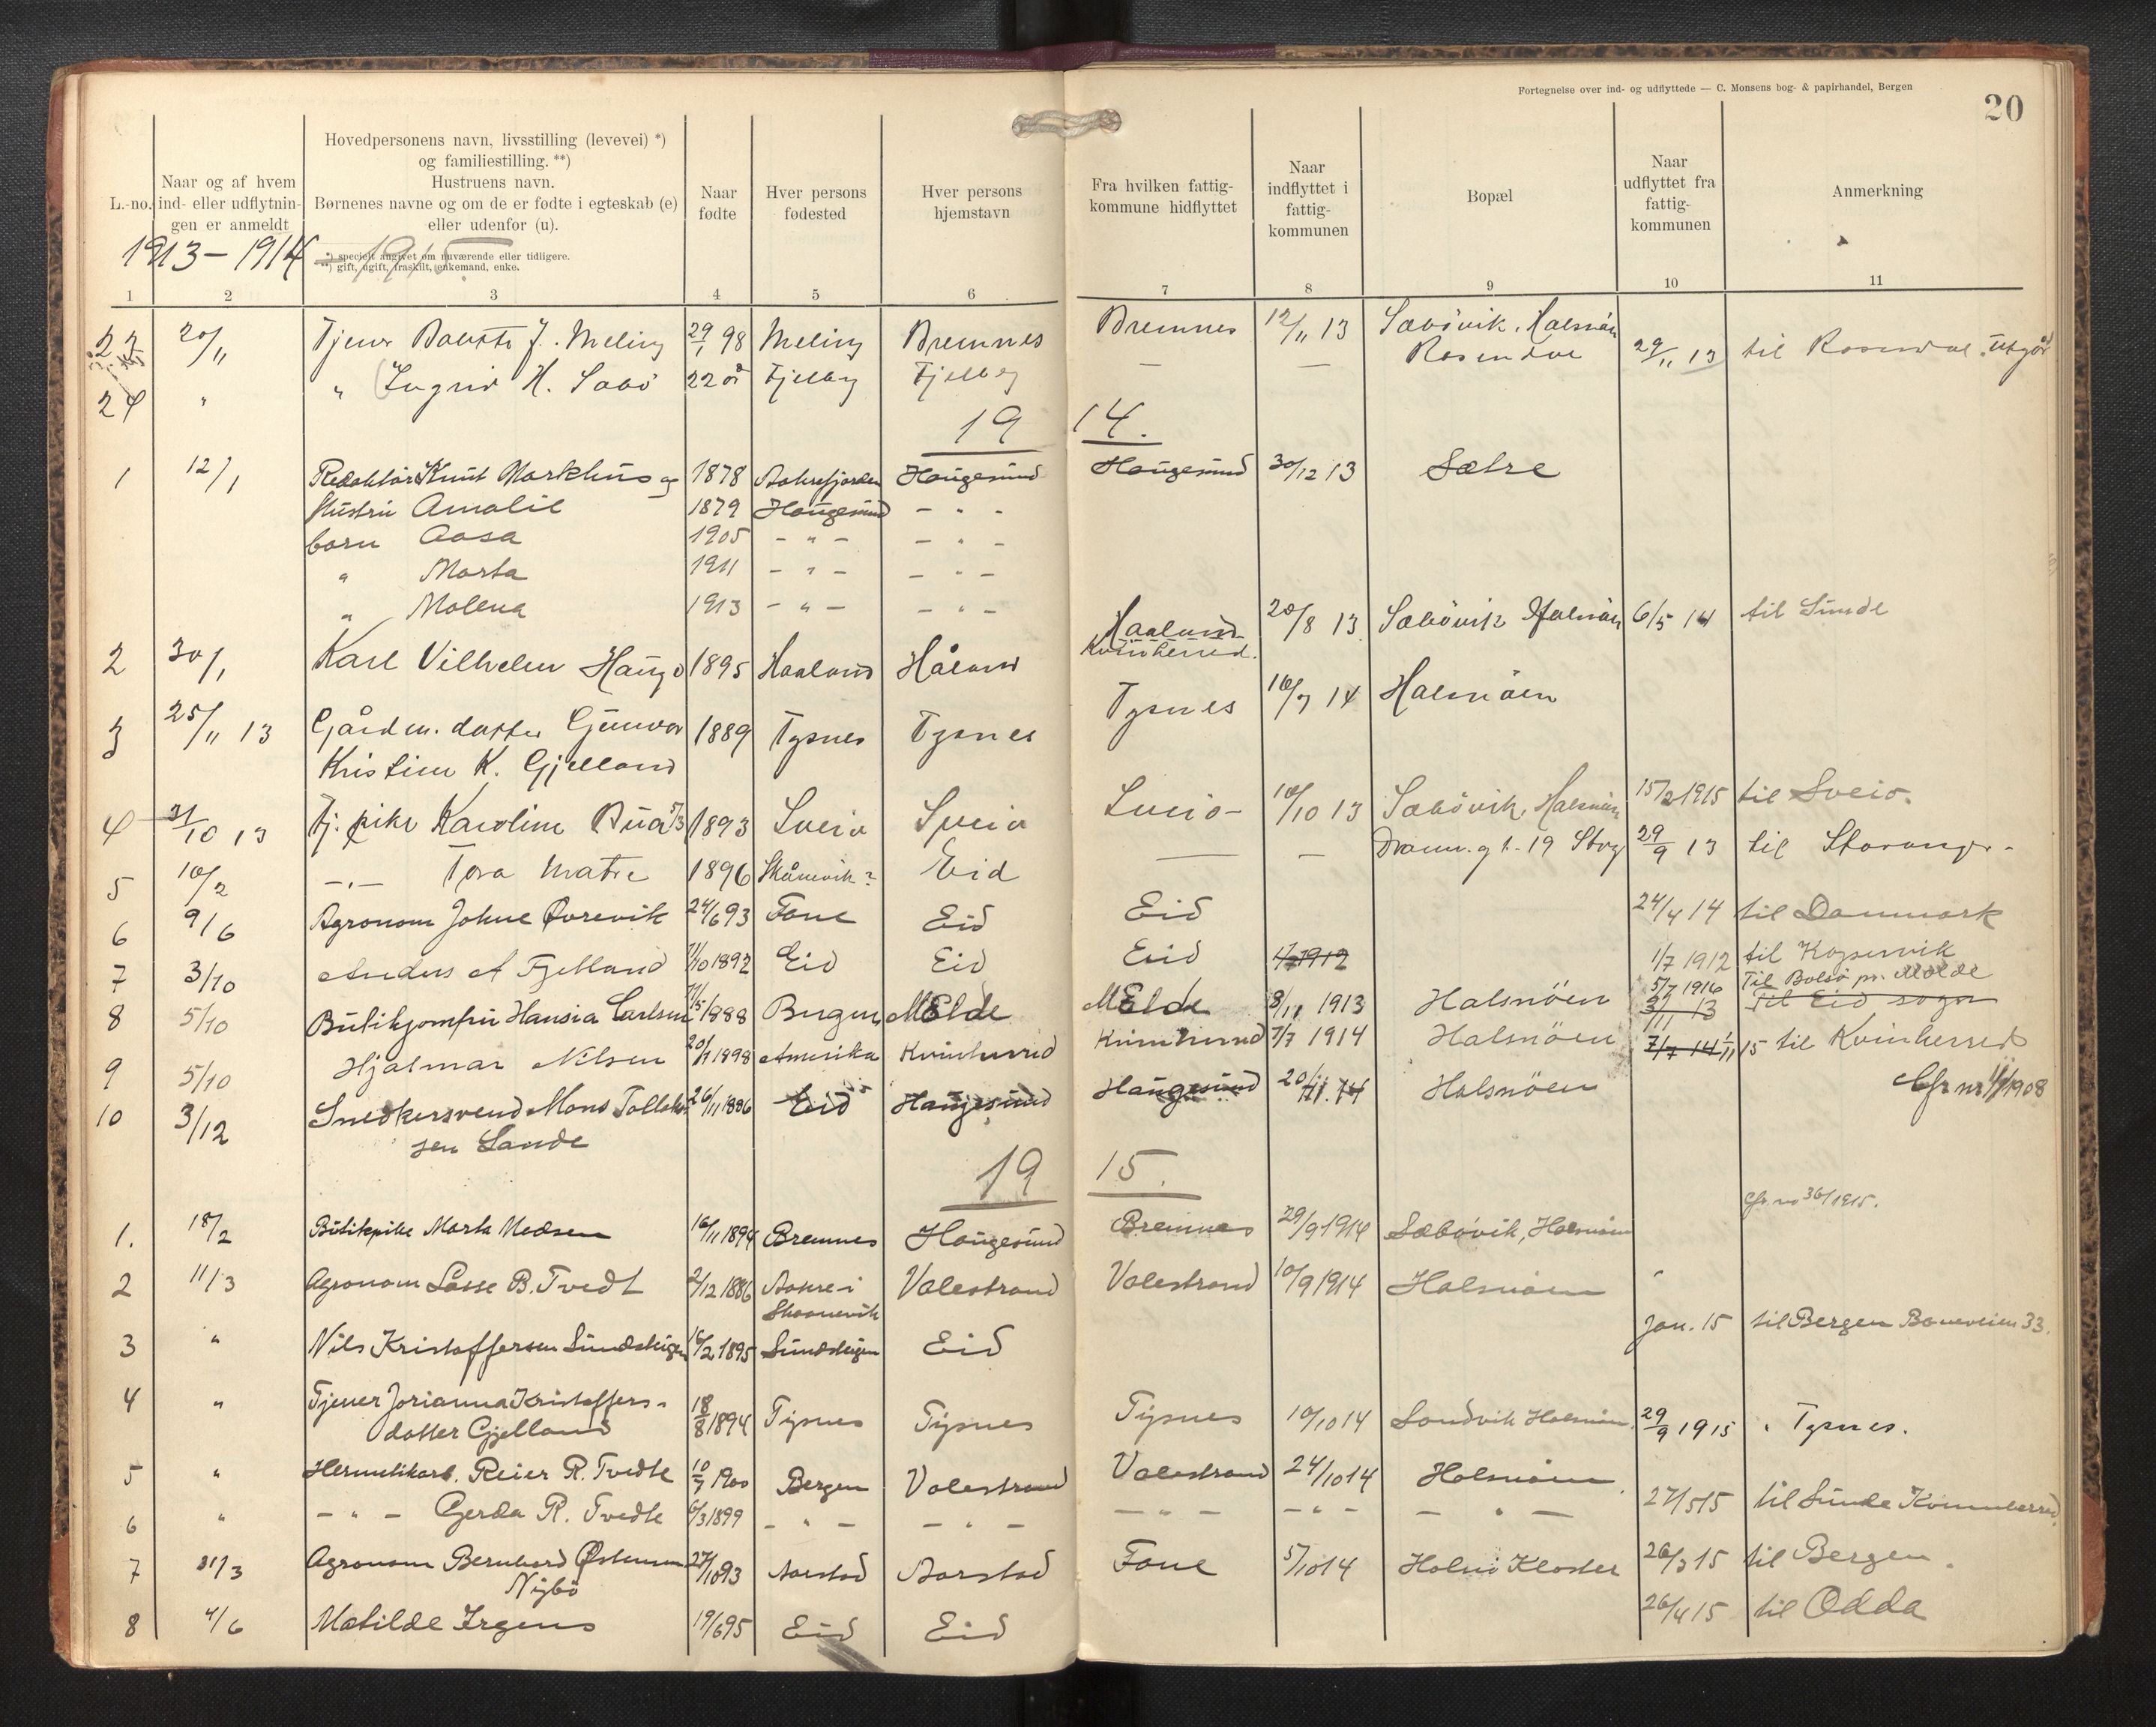 Fortegnelse over ind- og udflyttede — C. Monsens bog- & papirhandel, Bergen
20
L.-no.
Naar og af hvem ind- eller udflytnin- gen er anmeldt
Hovedpersonens navn, livsstilling (levevei) *)
og familiestilling. **)
Hustruens navn.
Børnenes navne og om de er fødte i egteskab (e)
eller udenfor (u).
*) specielt angivet om nuværende eller tidligere.
**) gift, ugift, fraskilt, enkemand, enke.
Naar fødte
Hver persons fødested
Hver persons hjemstavn
Fra hvilken fattig- kommune hidflyttet
Naar indflyttet i fattig- kommunen
Bopæl
Naar udflyttet fra fattig- kommunen
Anmerkning
1913-1914 - 1915
1 2 3 4 5 6 7 8 9 10 11
23 20/11 Tjener J. Meling 29/1 98 Meling Bremnes Bremnes 12/11 13 Sæbövik, Halsnöen
24 " " Ingrid H. Sæbö 22 år Fjelberg Fjelberg — — Rosendal 29/11 13 til Rosendal. Utgår
19 14.
1 12/1 Redaktör Knut Markhus og 1878 Aakrefjorden Haugesund Haugesund 30/12 13 Sætre
Hustru Amalie 1879 Haugesund - " -
born Aasa 1905 - " - - " -
" Marta 1911 - " - - " -
" Molena 1913 - " - - " -
2 30/1 Karl Vilhelm Haugo 1895 Haaland Håland Haaland Kvinherred. 20/8 13 Sæbövik Halsnöen 6/5 14 til Sunde
3 25/11 13 Gårdm. datter Gunvor 1889 Tysnes Tysnes Tysnes 10/7 14 Halsnöen
Kristine K. Gjelland
4 31/10 13 Tj. pike Karoline Bua 5/3 1893 Sveio Sveio Sveio - 10/10 13 Sæbövik, Halsnöen 15/2 1915 til Sveio.
5 10/2 -"- Tora Matre 1896 Skånevik? Eid — — Dramm. gt. 19 Stvgr 29/9 13 til Stavanger -
6 9/6 Agronom Johne Øvrevik 24/6 93 Fane Eid Eid 24/4 14 til Danmark
7 3/10 Anders A Fjelland 11/10 1892 Eid Eid Eid 1/7 1912 1/7 1912 til Kopervik
8 5/10 Butikjomfru Hansia Carlsen 11/5 1888 Bergen Molde Molde 8/11 1913 Halsnöen 5/7 1916 Til Bolsö pr. Molde
3/11 13 Til Eid sogn
9 5/10 Hjalmar Nilsen 20/1 1898 Amerika Kvinherred Kvinherred 7/7 1914 Halsnöen 7/7 14 1/11 15 til Kvinherred
10 3/12 Snedkersvend Mons Tollak- 26/11 1886 Eid Haugesund Haugesund 20/11 14 Halsnöen Cfr nr 1/1908
sen Sande
19 15.
1. 18/2 Butikpike Marta Madsen 16/11 1894 Bremnes Haugesund Bremnes 29/9 1914 Sæbövik, Halsnöen Cfr. no 36/1915.
2 11/3 Agronom Lasse B. Tvedt 2/12 1886 Aakre i Skaanevik Valestrand Valestrand 10/9 1914 Halsnöen
3 " Nils Kristoffersen Sundsteigen 16/2 1895 Sundsteigen Eid Jan. 15 til Bergen Baneveien 33.
4 " Tjener Jorianna Kristoffers- 18/8 1894 Tysnes Tysnes Tysnes 10/10 14 Sandvik Halsnöen 29/9 1915 " Tysnes.
datter Gjelland
5 " Hermetikarb. Reier R. Tvedte 10/7 1900 Bergen Valestrand Valestrand 24/10 14 Halsnöen
6 " - " - Gerda R. Tvedte 6/3 1899 - " - - " - - " - - " - - " - 27/5 15 til Sunde Kvinnherred.
7 31/3 Agronom Bernhard Østensen 27/10 93 Aarstad Aarstad Fane 5/10 14 Halsnö Kloster 26/3 15 til Bergen.
Nybö
8 4/6 Matilde Irgens 19/6 95 Eid Eid 26/4 15 til Odda